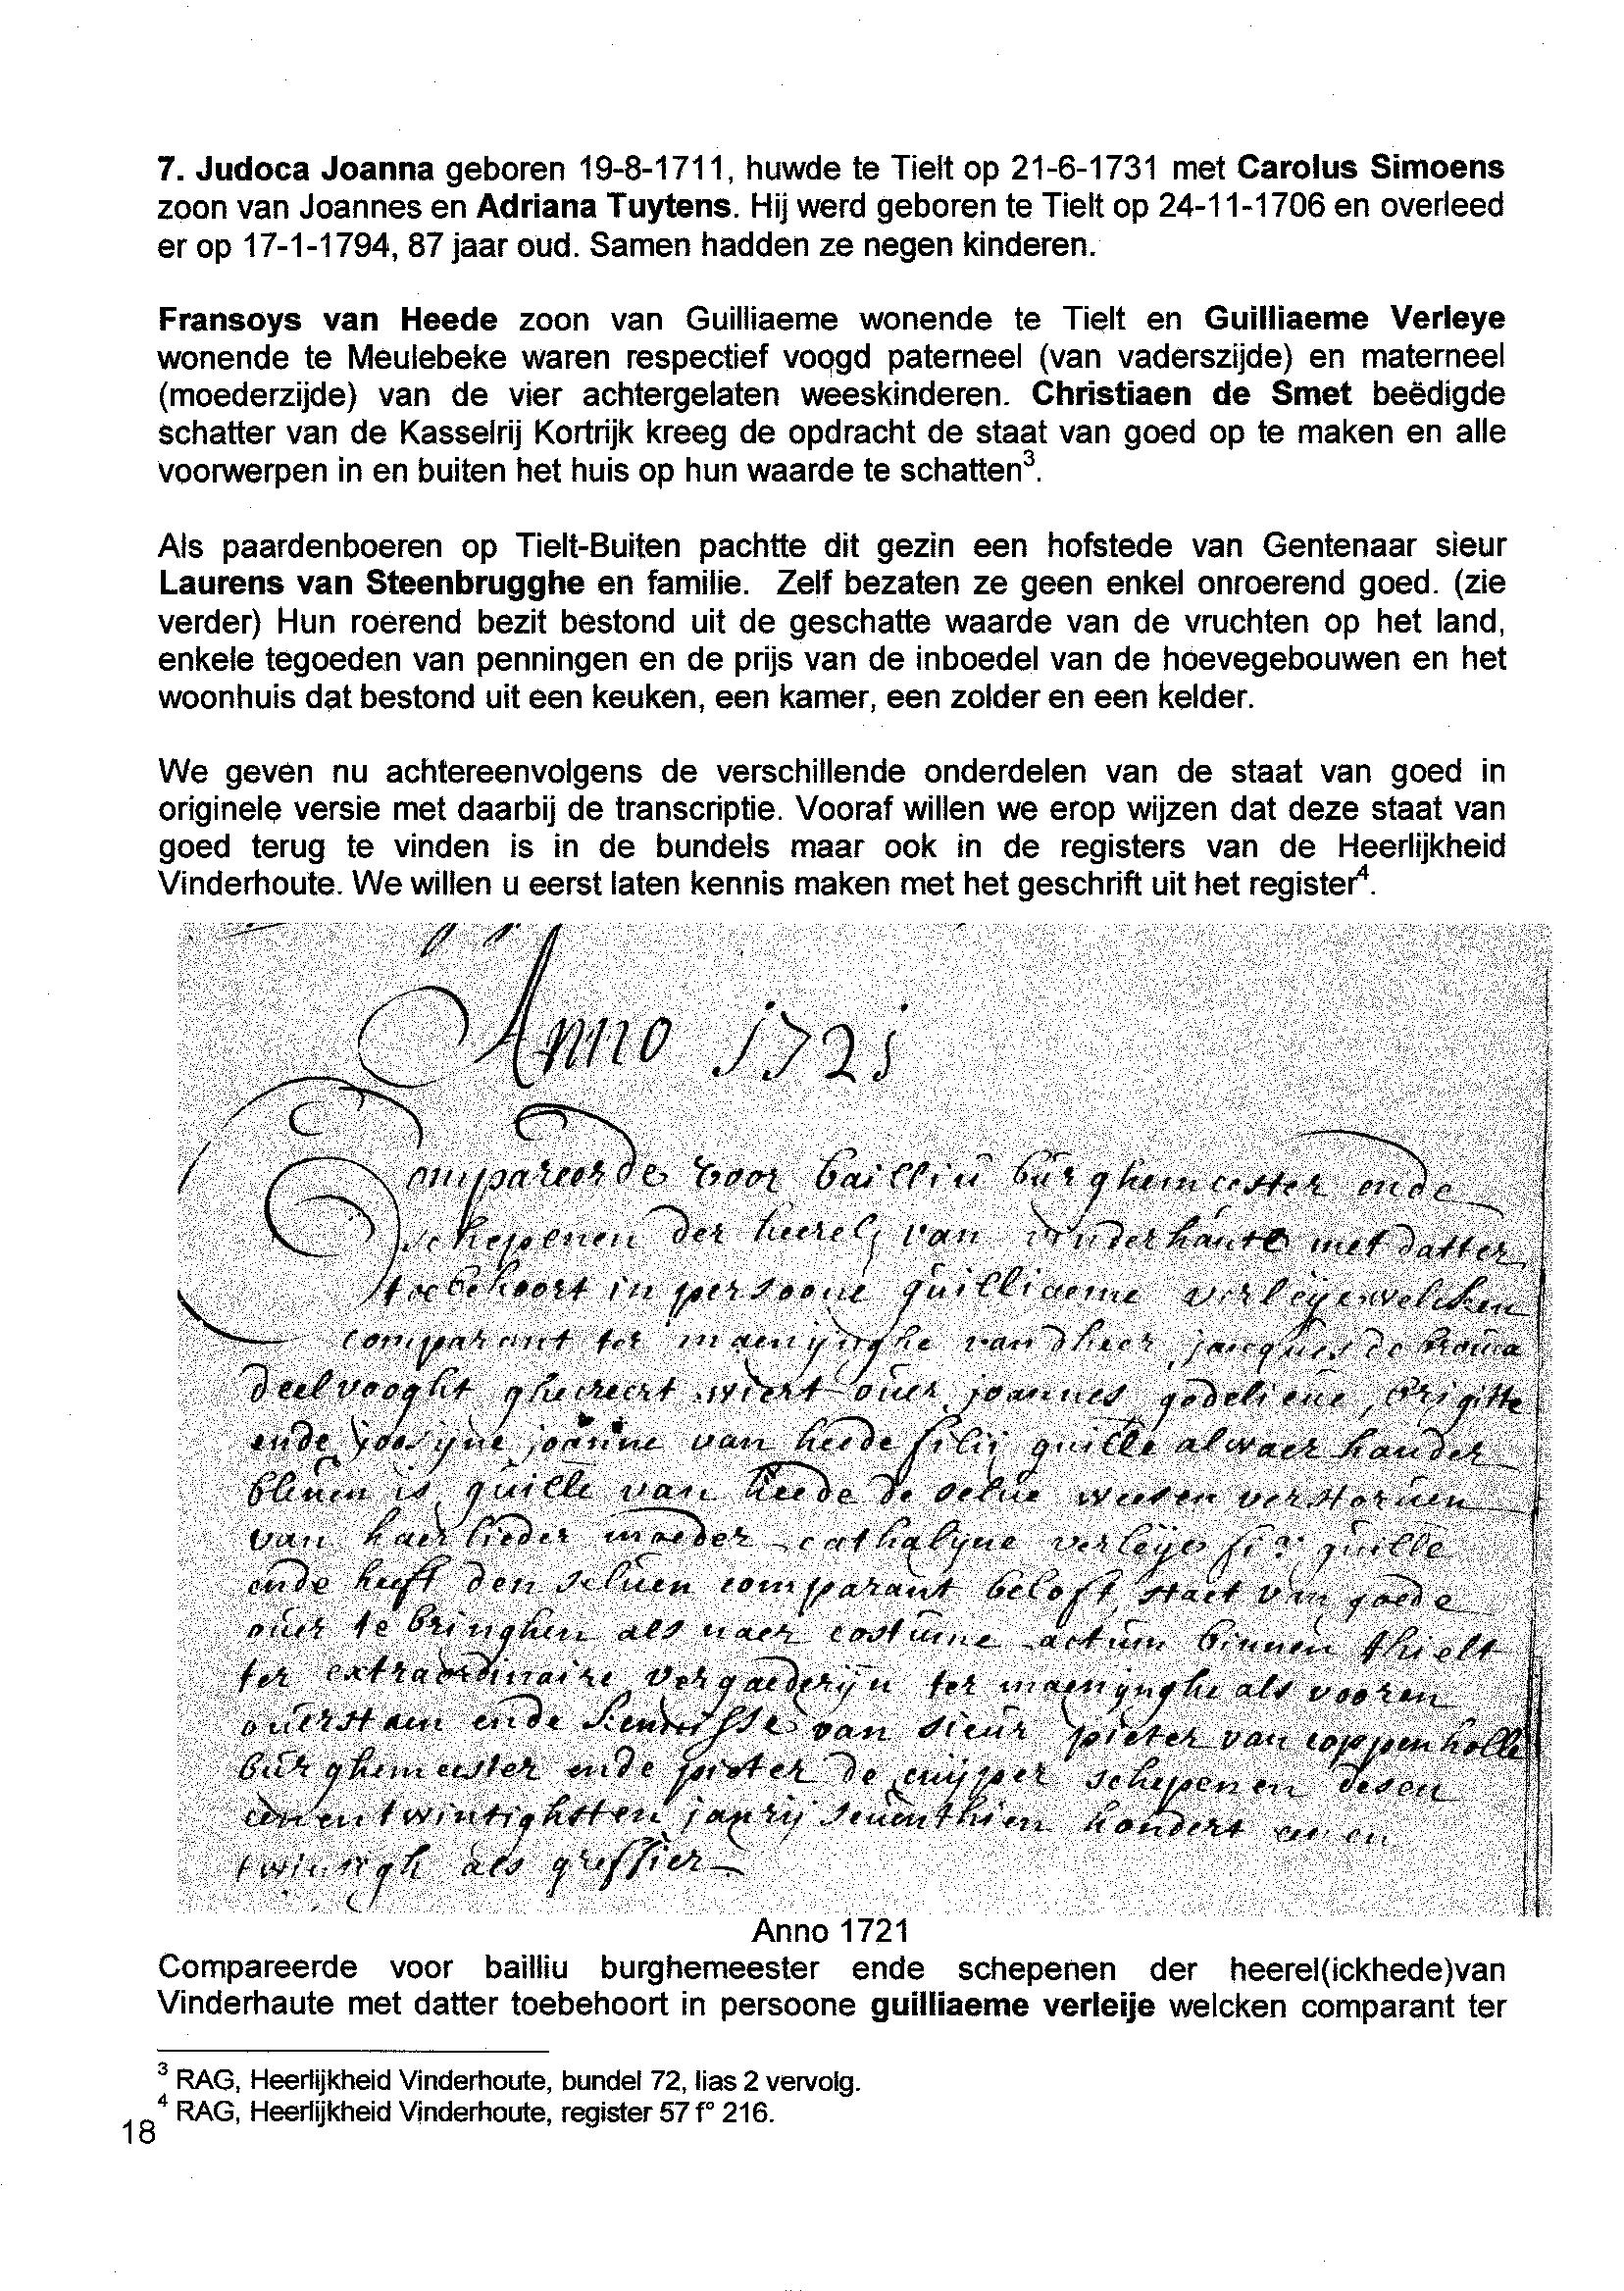 7. Judoca Joanna geboren 19-8-1711, huwde te Tielt op 21-6-1731 met Carolus Simoens
zoon van Joannes en Adriana Tuytens. Hij werd geboren te Tielt op 24-11-1706 en overleed
er op 17-1-1794, 87 jaar oud. Samen hadden ze negen kinderen.
Fransoys van Heede zoon van Guilliaeme wonende te Tielt en Guilliaeme Verleye
wonende te Meulebeke waren respectief voogd paterneel (van vaderszijde) en materneel
(moederzijde) van de vier achtergelaten weeskinderen. Christiaen de Smet beëdigde
schatter van de Kasselrij Kortrijk kreeg de opdracht de staat van goed op te maken en alle
voorwerpen in en buiten het huis op hun waarde te schatten3.
Als paardenboeren op Tielt-Buiten pachtte dit gezin een hofstede van Gentenaar sieur
Laurens van Steenbrugghe en familie. Zelf bezaten ze geen enkel onroerend goed. (zie
verder) Hun roerend bezit bestond uit de geschatte waarde van de vruchten op het land,
enkele tegoeden van penningen en de prijs van de inboedel van de hoevegebouwen en het
woonhuis dat bestond uit een keuken, een kamer, een zolder en een kelder.
We geven nu achtereenvolgens de verschillende onderdelen van de staat van goed in
originele versie met daarbij de transcriptie. Vooraf willen we erop wijzen dat deze staat van
goed terug te vinden is in de bundels maar ook in de registers van de Heerlijkheid
Vinderhoute. We willen u eerst laten kennis maken met het geschrift uit het register4.
Anno 1721
Compareerde voor bailliu burghemeester ende
schepenen der heerel van vinderhaute met datter
toebehoort in persoone guilliaeme verleye welcken
comparant ter maenijnghe van dheer jacques de
deelvooght ghecreert wiert over joannes godeliene, brigitte
ende joosijne joanne van heede filii guille alwaer hauder
bleven is guille van heede de selve weesen verstorven
van haerlieder moeder cathalyne verleye fa guille
ende heeft den selven comparant beloft staet van goede
over te bringhen als naer costume actum binnen thielt
ter extraordinaire vergaederijn ter maenijnghe als vooren
overstaen ende kennisse van sieur pieter van coppenholle
burghemeester ende pieter de cuijper schepenen desen
eenentwintighsten janrij seventhien hondert eenen
twintigh als greffier
Anno 1721
Compareerde voor bailliu burghemeester ende schepenen der heerel(ickhede)van
Vinderhaute met datter toebehoort in persoone guilliaeme verleije welcken comparant ter
3 RAG, Heerlijkheid Vinderhoute, bundel 72, lias 2 vervolg.
4 RAG, Heerlijkheid Vinderhoute, register 57 f° 216.
18